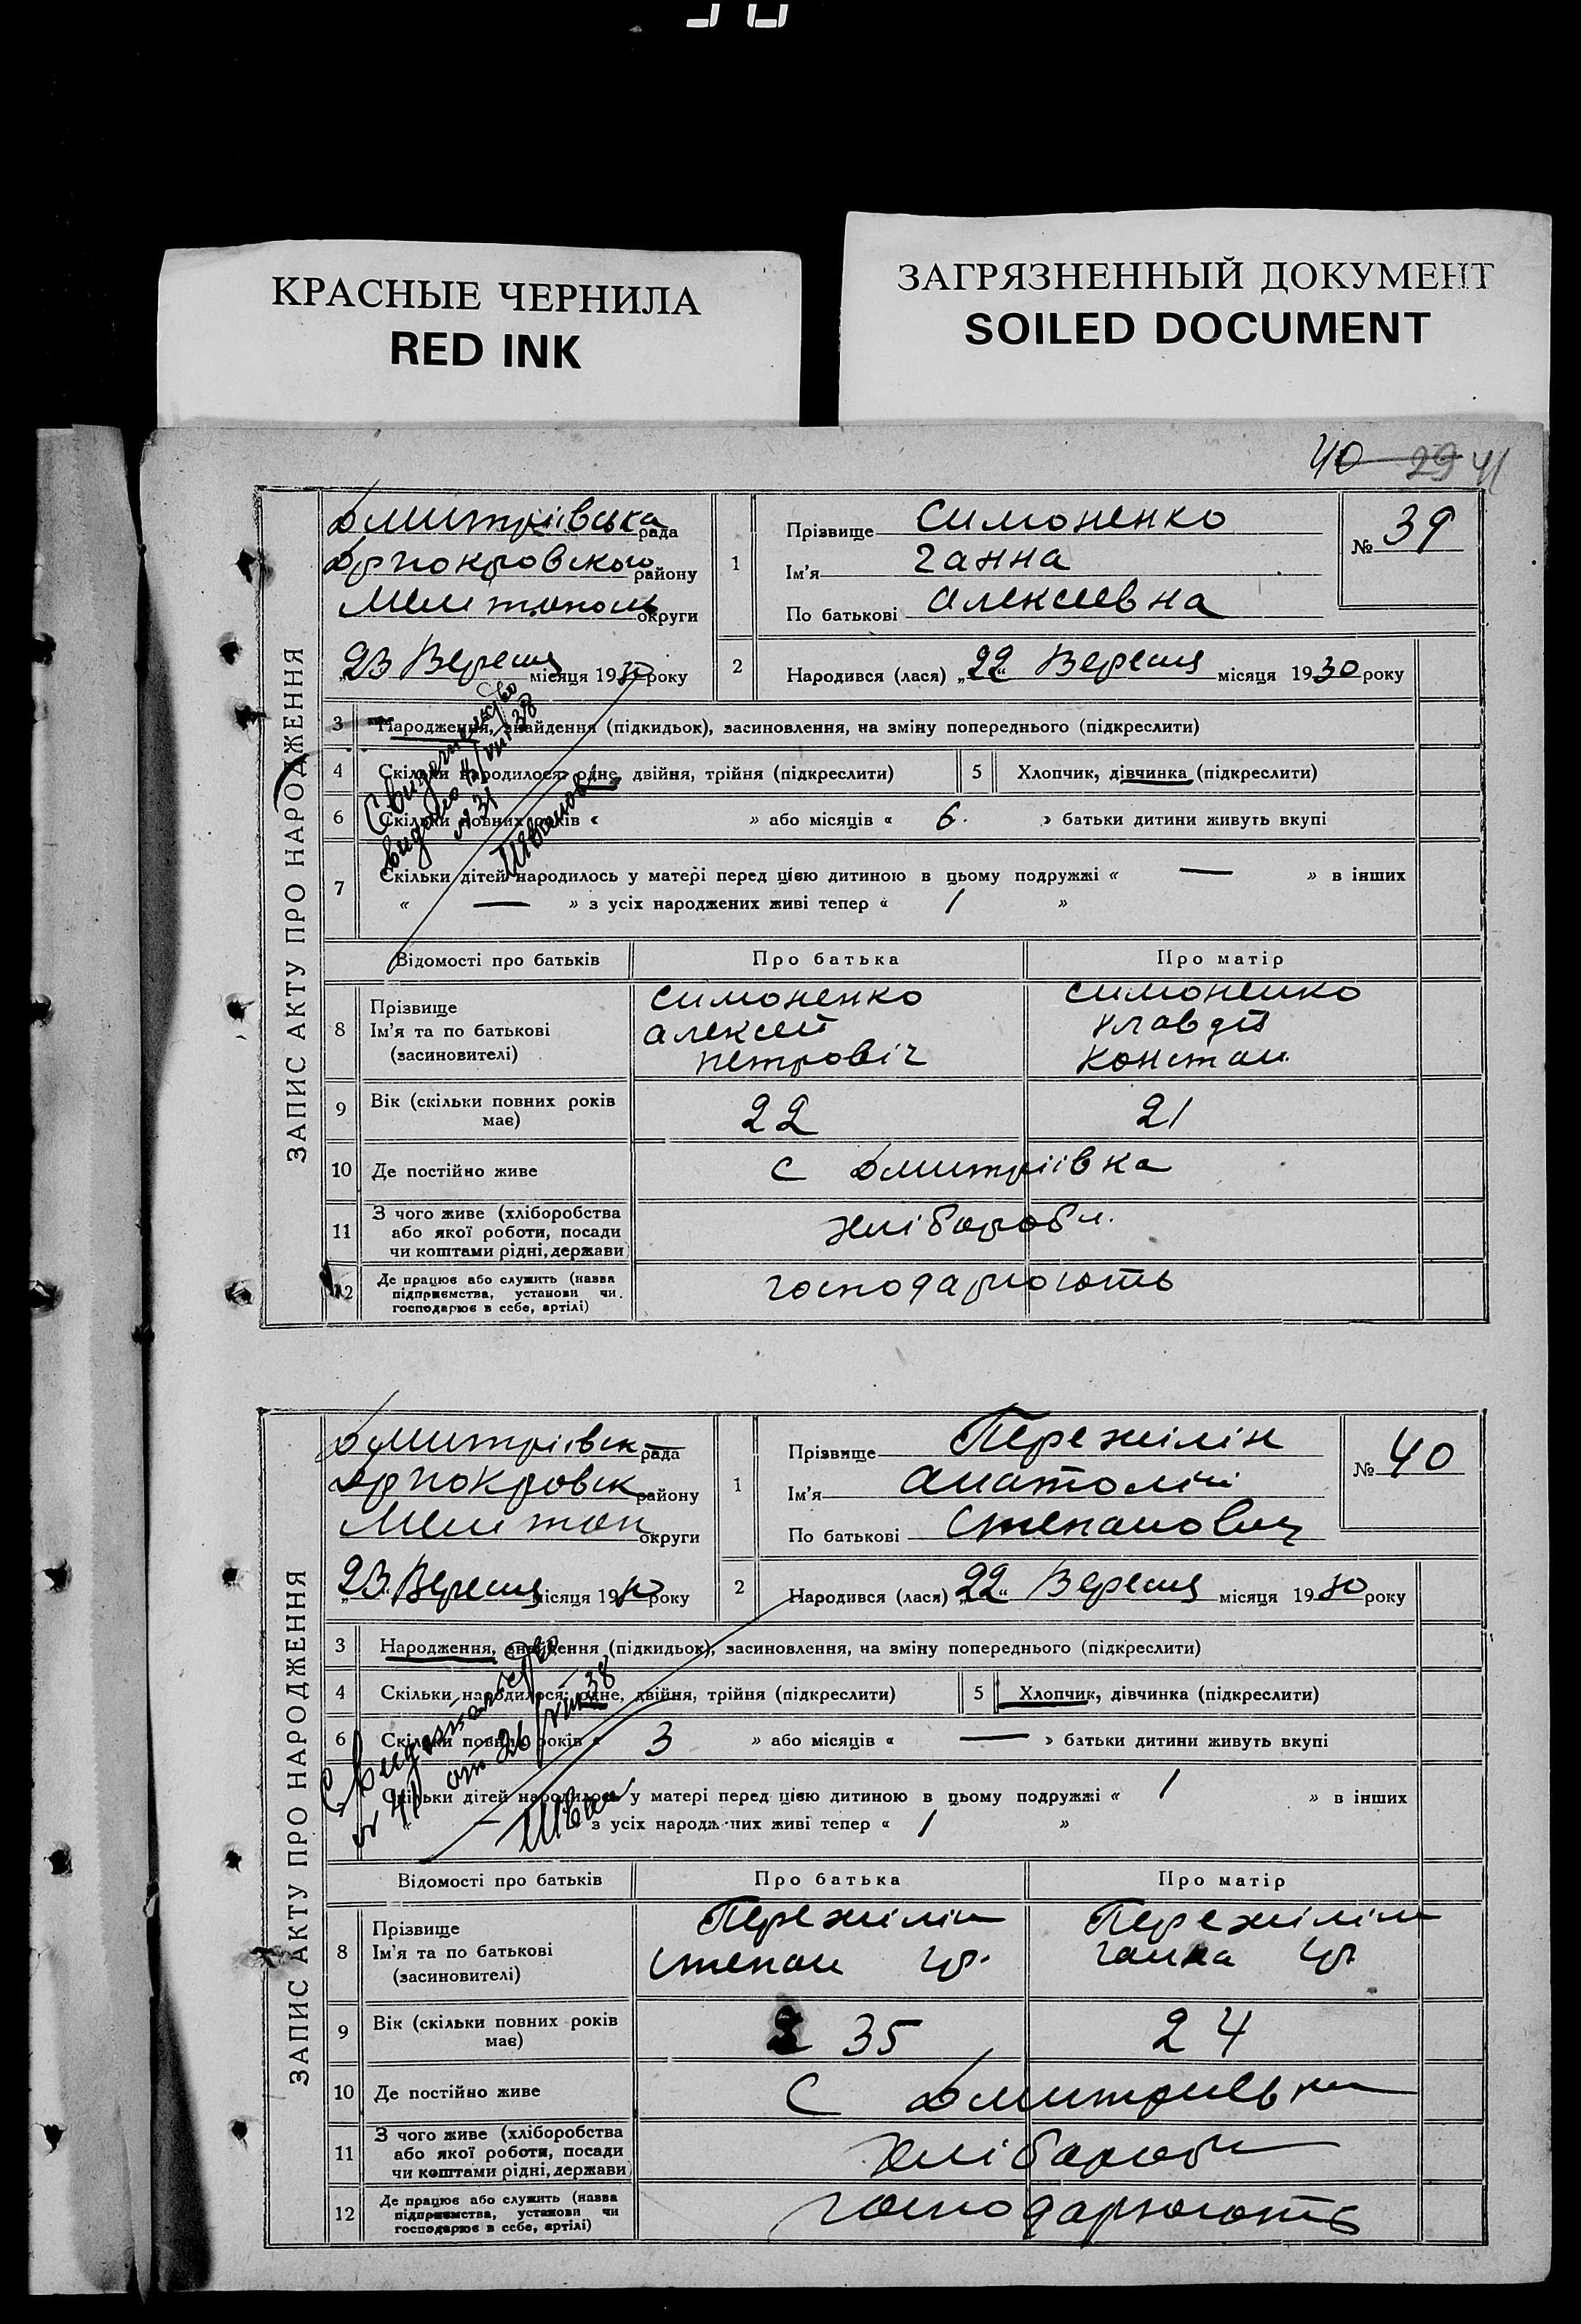 КРАСНЫЕ ЧЕРНИЛА
RED INK
ЗАГРЯЗНЕННЫЙ ДОКУМЕНТ
SOILED DOCUMENT
40 29 41
ЗАПИС АКТУ ПРО НАРОДЖЕННЯ
Дмитріівська рада
району
Мелитополь округи
„23 Вересня місяця 1930 року
1
Прізвище Симоненко
Ім'я Ганна
По батькові Алексеевна
№ 39
2
Народився (лася) „22“ Вересня місяця 1930 року
3 Народження, знайдення (підкидьок), засиновлення, на зміну попереднього (підкреслити)
4 Скільки народилося: одне, двійня, трійня (підкреслити)
5 Хлопчик, дівчинка (підкреслити)
6 Скільки повних років « » або місяців « 6. » батьки дитини живуть вкупі
7 Скільки дітей народилось у матері перед цією дитиною в цьому подружжі « — » в інших
« — » з усіх народжених живі тепер « 1 »
Свидетельство
видано 14/VIII 38
№ 31
Відомості про батьків Про батька Про матір
8 Прізвище
Ім'я та по батькові
(засиновителі)
Симоненко
Алексей
Петровіч
Симоненко
Клавдія
Констан.
9 Вік (скільки повних років має) 22 21
10 Де постійно живе с Дмитріівка
11 З чого живе (хліборобства
або якої роботи, посади
чи коштами рідні, держави)
хлібороби.
12 Де працює або служить (назва
підприємства, установи чи
господарює в себе, артілі)
господарюють
ЗАПИС АКТУ ПРО НАРОДЖЕННЯ
Дмитріівськ рада
району
Мелитоп округи
„23. Вересня місяця 1930 року
1
Прізвище Пережілін
Ім'я Анатолій
По батькові Степанович
№ 40
2
Народився (лася) „22“ Вересня місяця 1930 року
3 Народження, знайдення (підкидьок), засиновлення, на зміну попереднього (підкреслити)
4 Скільки народилося: одне, двійня, трійня (підкреслити)
5 Хлопчик, дівчинка (підкреслити)
6 Скільки повних років « 3 » або місяців « — » батьки дитини живуть вкупі
Скільки дітей народилось у матері перед цією дитиною в цьому подружжі « 1 » в інших
« — з усіх народжених живі тепер « 1 »
Свидетельство
№ 41 от 26/VIII 38
Відомості про батьків Про батька Про матір
8 Прізвище
Ім'я та по батькові
(засиновителі)
Пережілін
Степан Гр.
Пережіліна
Ганна Гр.
9 Вік (скільки повних років має) 35 24
10 Де постійно живе с Дмитриевка
11 З чого живе (хліборобства
або якої роботи, посади
чи коштами рідні, держави)
хлібороби
12 Де працює або служить (назва
підприємства, установи чи
господарює в себе, артілі)
господарюють